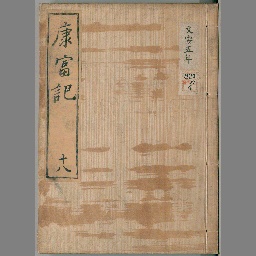 康富記
十八
文安五年